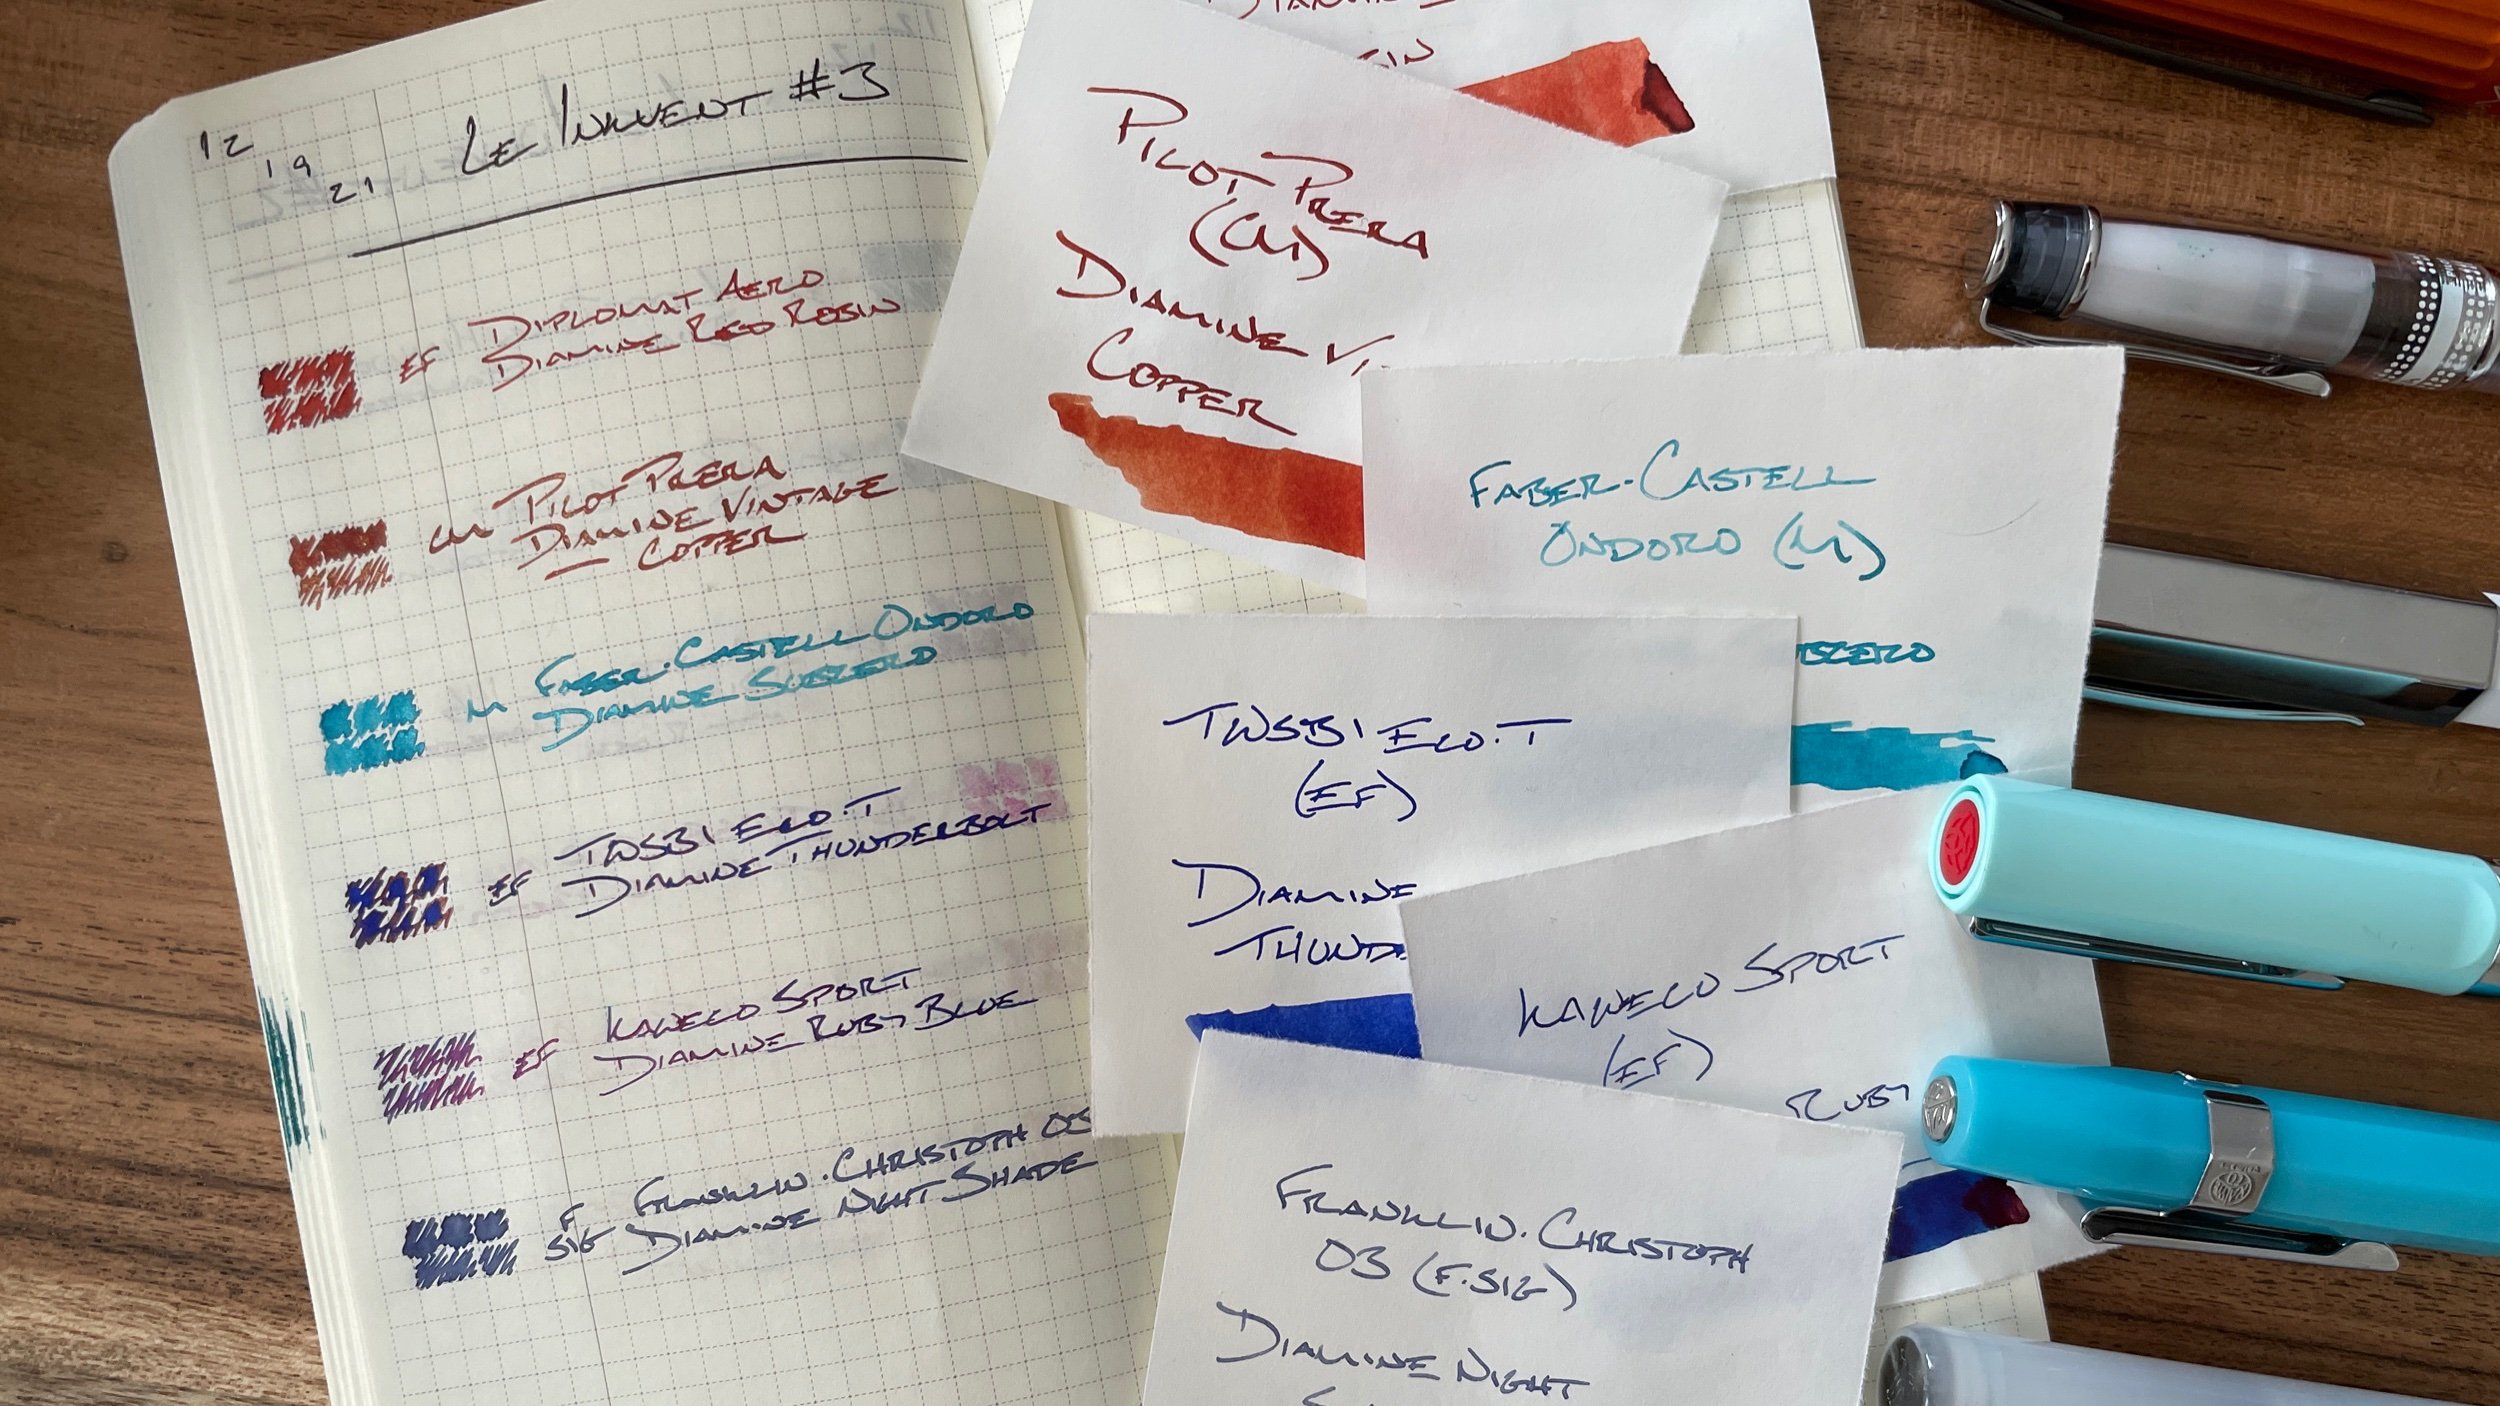 12
19
21
Le Inkvent #3
EF Diplomat Aero
Diamine Red Robin
CM Pilot Prera
Diamine Vintage
Copper
M Faber-Castell Ondoro
Diamine Subzero
EF TWSBI Eco-T
Diamine Thunderbolt
EF Kaweco Sport
Diamine Ruby Blue
F
SIG
Franklin-Christoph 03
Diamine Night Shade
Pilot Prera
(CM)
Diamine Vi
Copper
Faber-Castell
Ondoro (M)
bzero
TWSBI Eco-T
(EF)
Diamine
Thunde
Kaweco Sport
(EF)
Ruby
Franklin-Christoph
03 (F-SIG)
Diamine Night